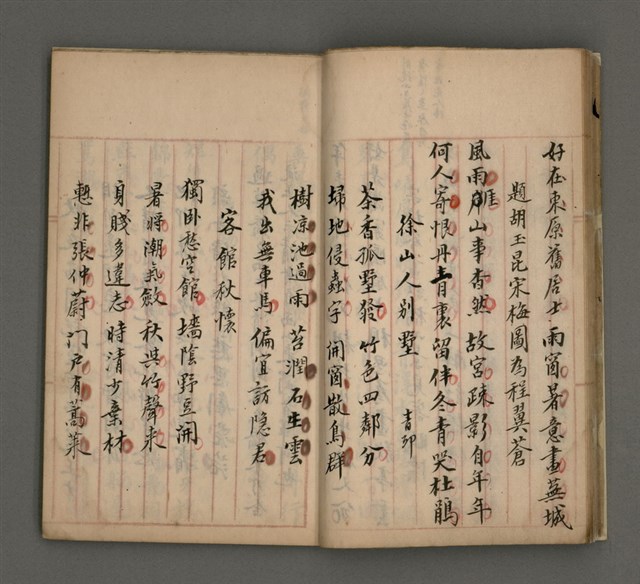 好在東原舊居士雨窗著意畫蕪城
題胡玉昆宋梅圖為程翼蒼
風雨厓山事杳然故宮疎影自年年
何人寄恨丹青裏留伴冬青哭杜鵑
徐山人別墅
茶香孤墅發竹色四鄰分
埽地侵蟲宇開窗散鳥群
樹凉池過雨苔潤石生雲
我出無車馬偏宜訪隱君
客館秋懷
獨卧愁空館墻陰野豆開
暑將潮氣斂秋與竹聲来
身賤多違志時清少棄材
慙非張仲蔚門戶有蒿萊